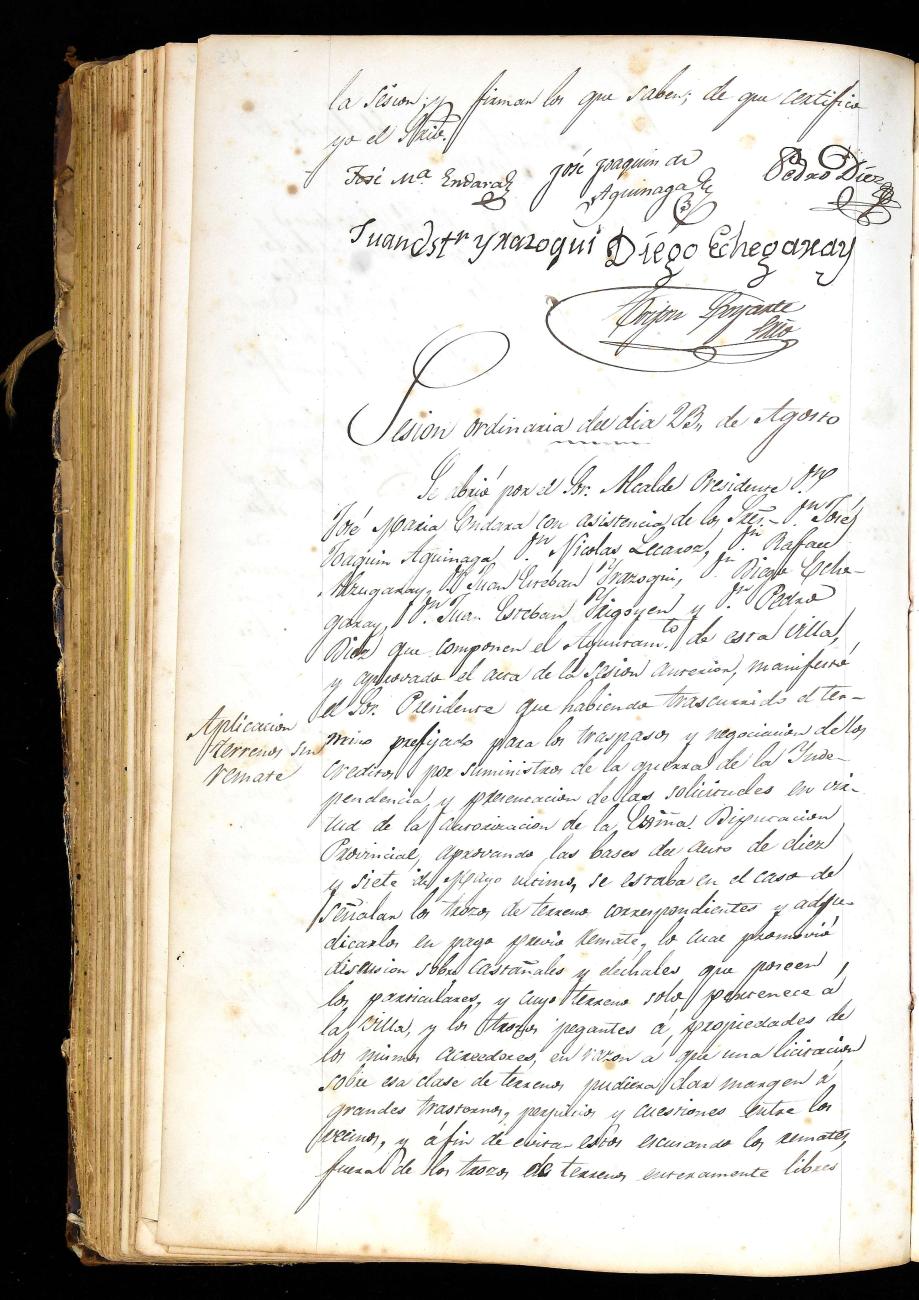 la sesion; y firman los que saben; de que certifico
yo el Srio.
José Ma. Endara
José Joaquin de
Aguinaga
Pedro Díez
Juan Estn Yrazoqui
Diégo Echegaray
Srio
Sesion ordinaria del dia 23,, de Agosto
Se abrió por el Sr. Alcalde Presidente Dn.
José Maria Endara con asistencia de los Sres.- Dn. José
Joaquin Aguinaga, Dn. Nicolas Lecaroz, Dn. Rafael
Alzugaray, Dn. Juan Esteban Yrazoqui, Dn. Diego Eche-
garay, Dn. Juan Esteban Yrigoyen y Dn. Pedro
Diez que componen el Ayuntamto. de esta villa,
y aprovado el acta de la sesion anterior, manifestó
el Sor. Presidente que habiendo trascurrido el ter-
Aplicacion
terrenos sin
remate
mino prefijado para los traspasos y negociacion de los
creditos por suministros de la guerra de la Inde-
pendencia, y presentacion de las solicitudes en vir-
tud de la autorizacion de la Escma. Diputacion
Provincial, aprovando las bases del auto de diez
y siete de Mayo ultimo, se estaba en el caso de
señalar los trozos de terreno correspondientes y adju-
dicarlos en pago previo remate, lo cual promovió
discusion sobre castañales y elechales que poseen
los particulares, y cuyo terreno solo pertenece á
la villa, y los trozos pegantes á propiedades de
los mismos acreedores, en razon á que una licitacion
sobre esa clase de terrenos pudiera dar margen á
grandes trastornos, perjuicios y cuestiones entre los
vecinos, y á fin de evitar estos escusando los remates,
fuera de los trozos de terrenos enteramente libres